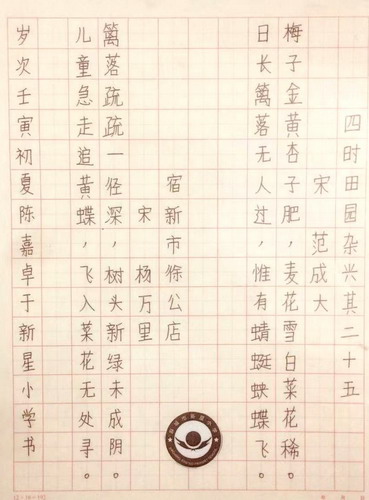 四时田园杂兴其二十五
宋 范成大
梅子金黄杏子肥，麦花雪白菜花稀。
日长篱落无人过，惟有蜻蜓蛱蝶飞。
宿新市徐公店
宋 杨万里
篱落疏疏一径深，树头新绿未成阴。
儿童急走追黄蝶，飞入菜花无处寻。
岁次壬寅初夏陈嘉卓于新星小学书